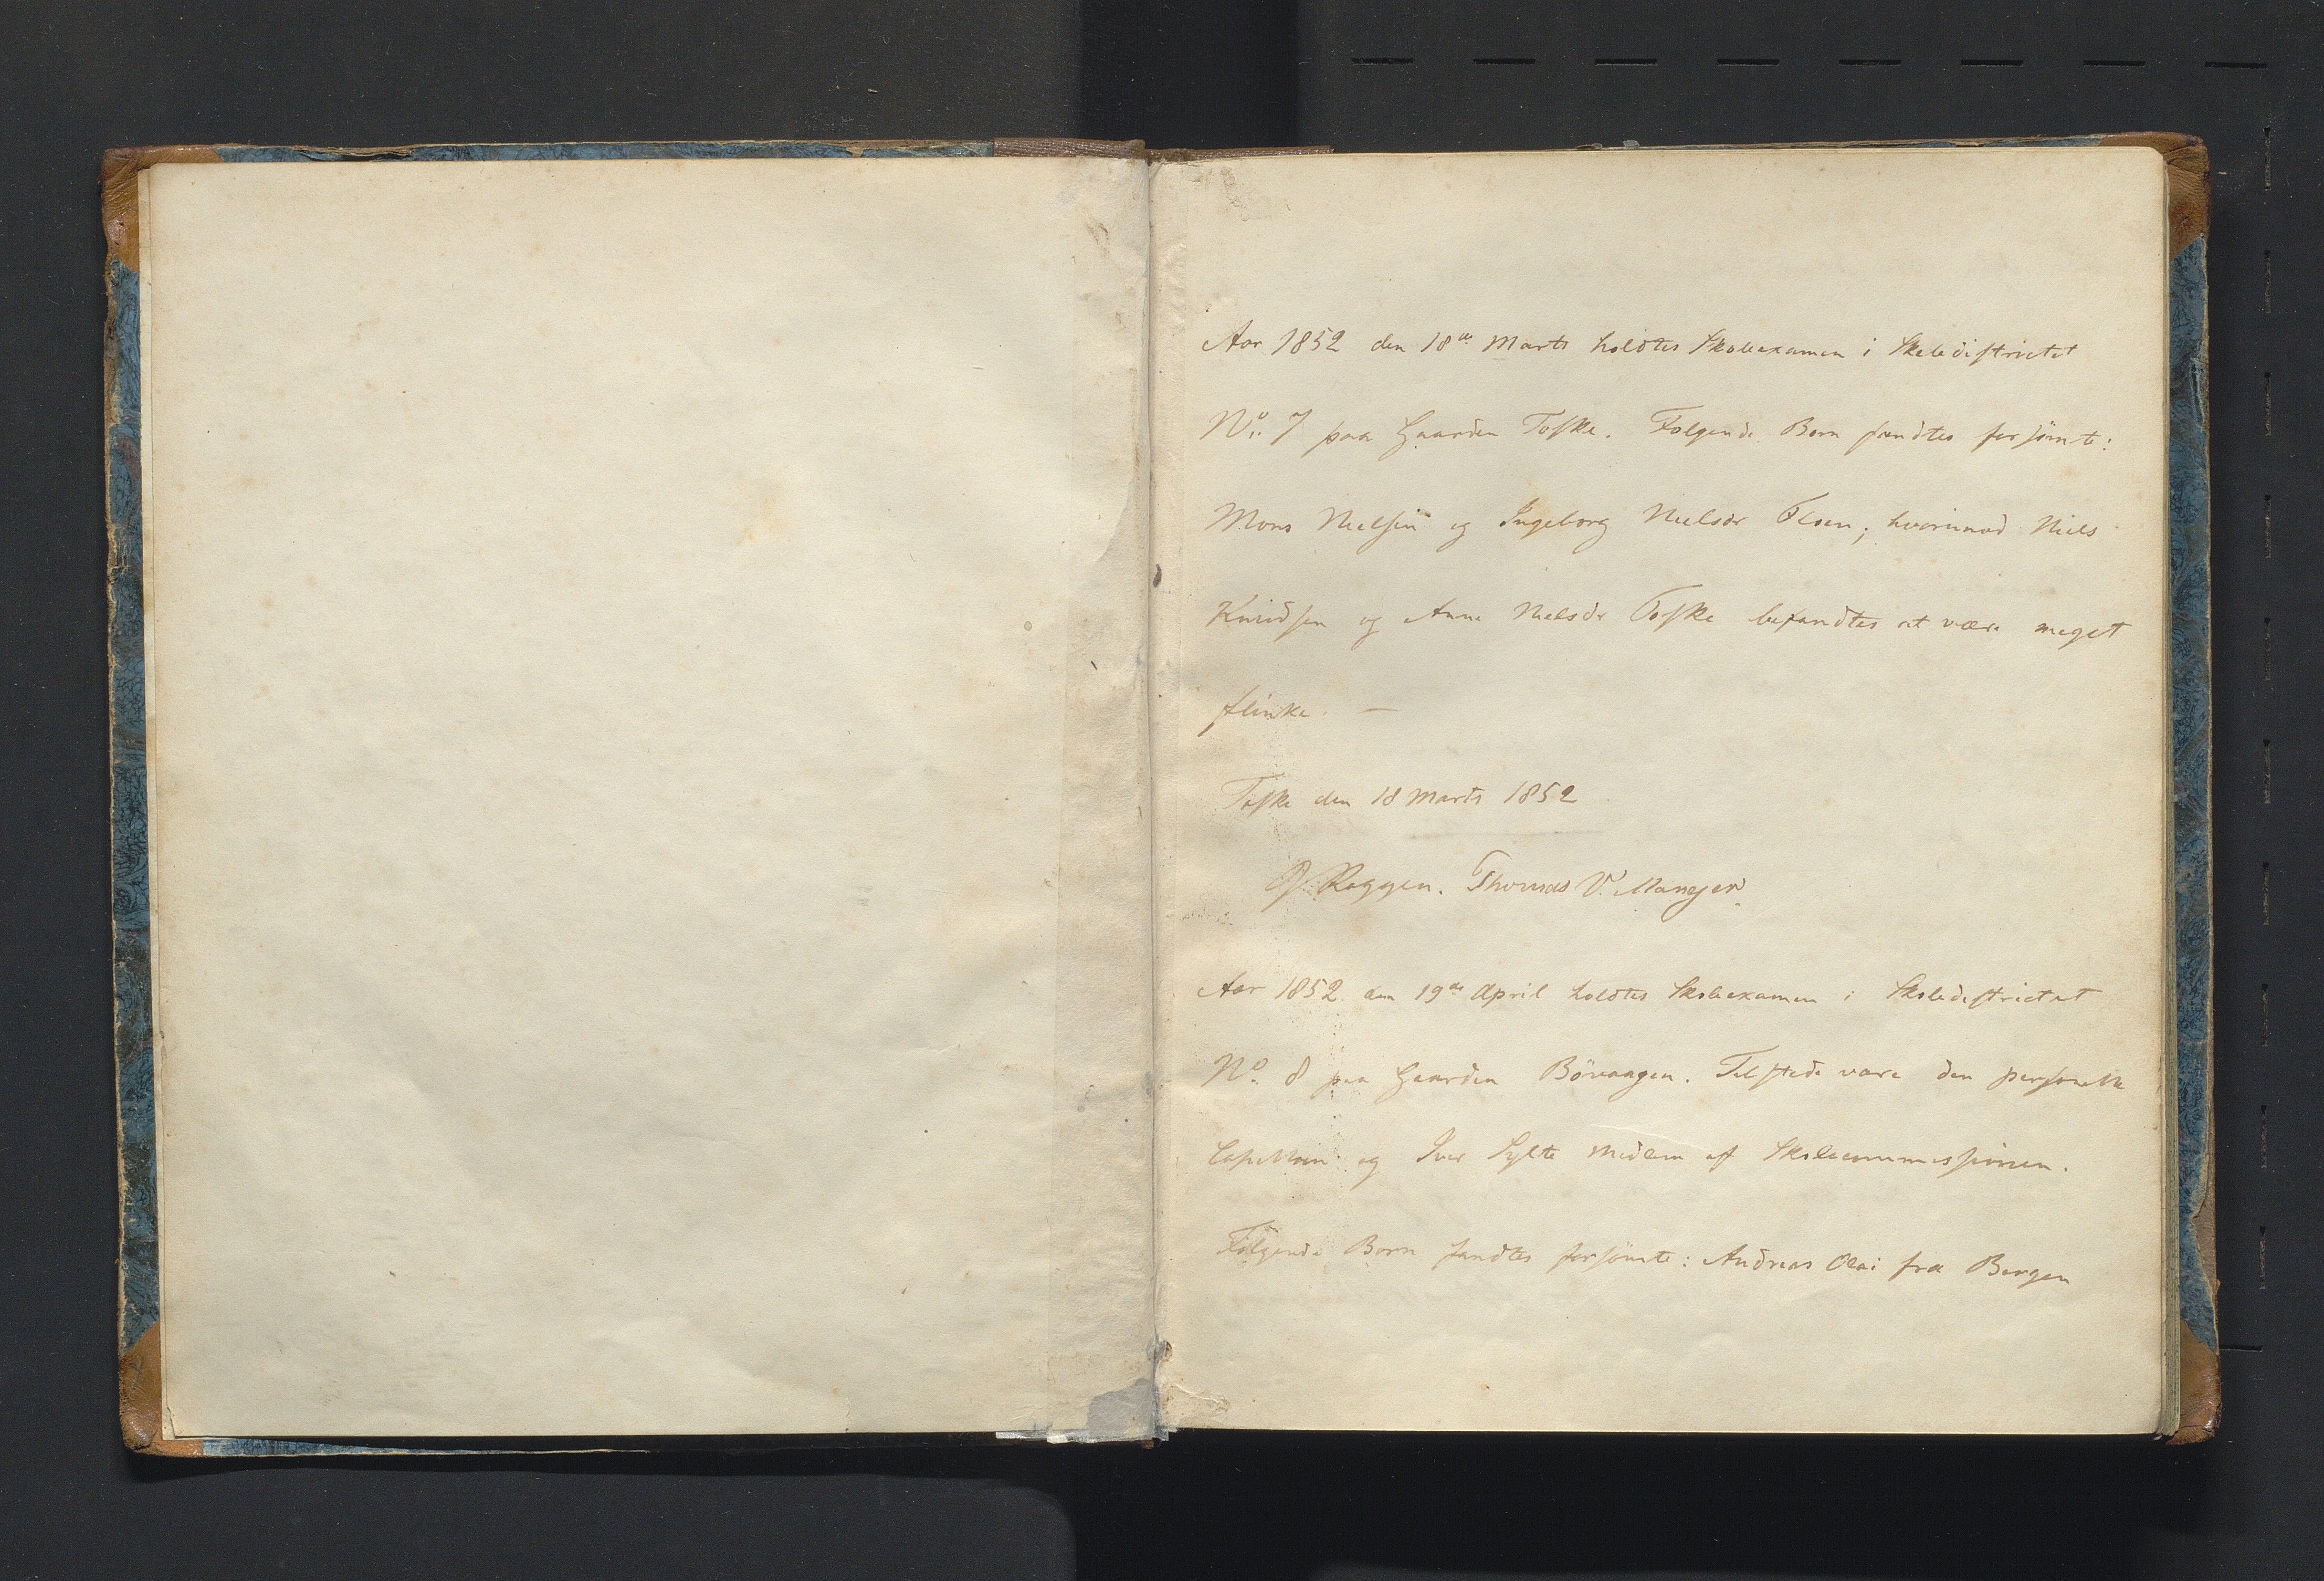 Aar 1852 den 18de Marts holdtes Skoleexamen i Skoledistrictet
No. 7 paa Gaarden Toska. Følgende Børn fandtes forsømte:
Mons Nielsen og Ingeborg Nielsdr Floen; hvorimod Niels
Knudsen og Anne Nielsdr Toska befandtes at være meget
flinke. —
Toska den 18 Marts 1852
Roggen. Thomas V. Manger.
Aar 1852 den 19de April holdtes Skoleexamen i Skoledistrictet
No. 8 paa Gaarden Bövaagen. Tilstede vare den personelle
Capellan og Iver Sylte Medlem af Skolecommissionen.
Følgende Børn fandtes forsømte: Andreas Olai fra Bergen